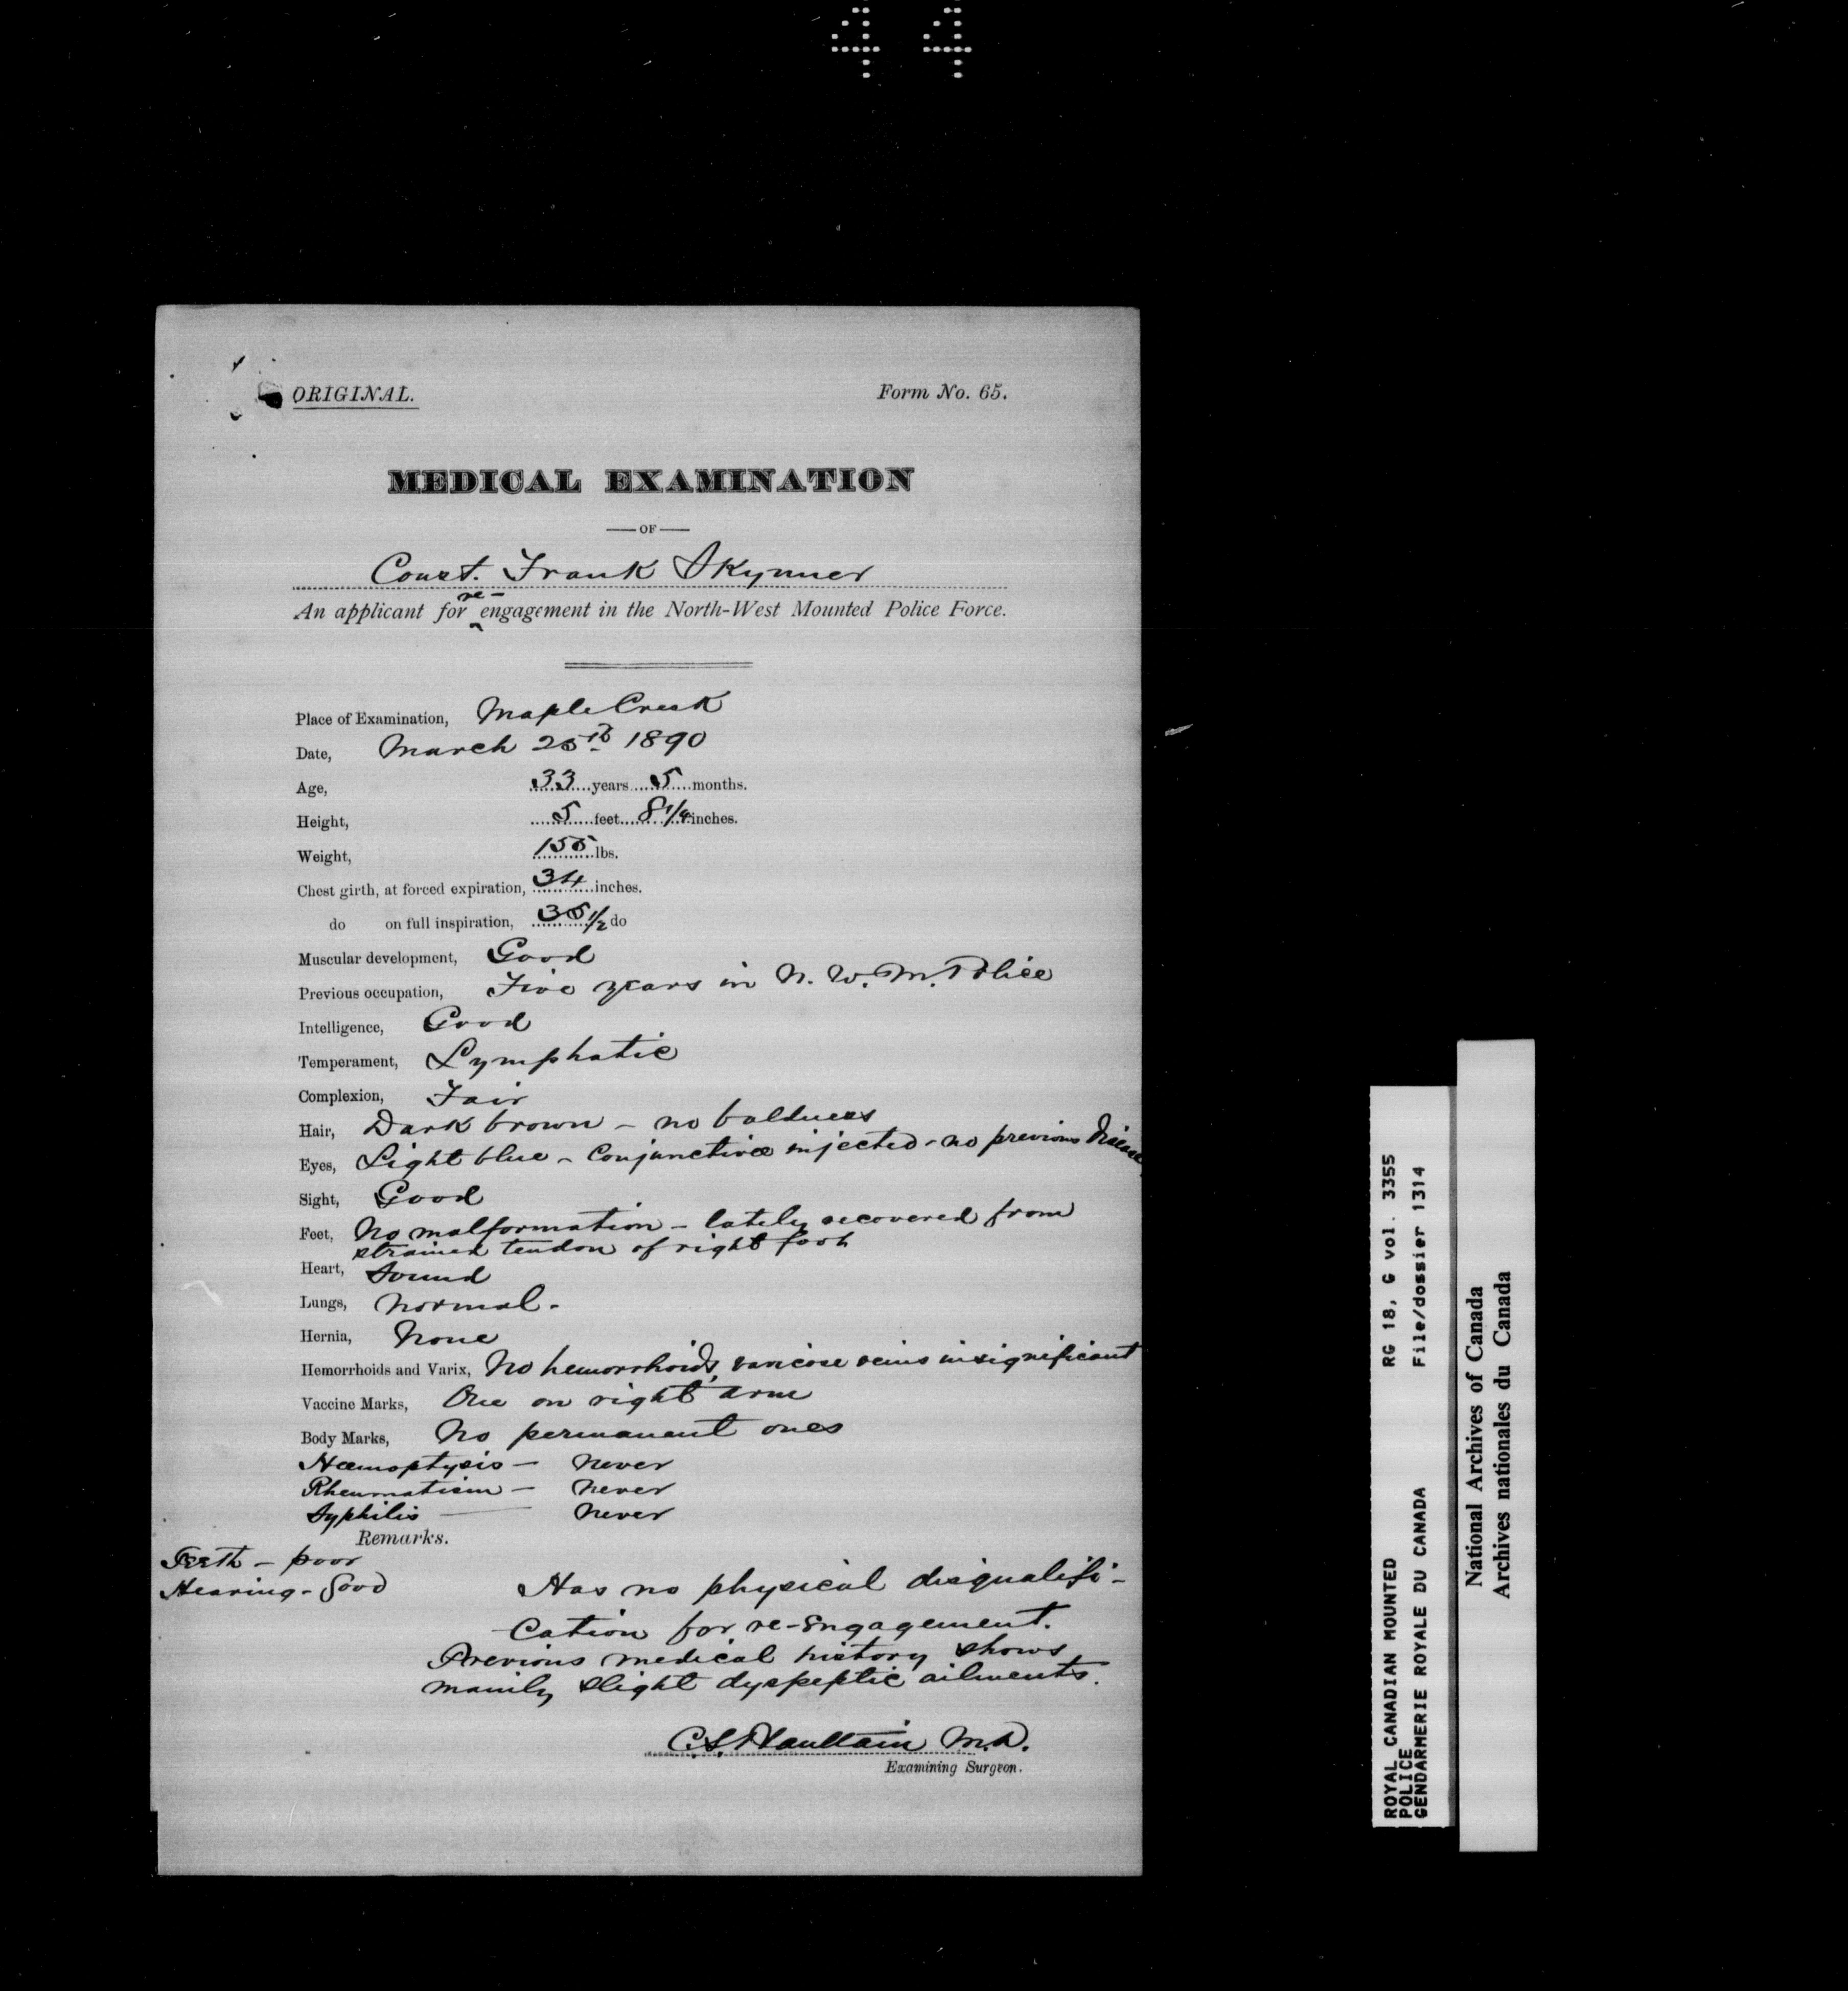 44
ORIGINAL.
Form No. 65.
MEDICAL EXAMINATION
OF
Const. Frank Skynner
re-
An applicant for ^ engagement in the North-West Mounted Police Force.
Place of Examination, Maple Creek
Date, March 25th 1890
Age, 33 years 5 months.
Height, 5 feet 8 1/4 inches.
Weight, 155 lbs.
Chest girth, at forced expiration, 34 inches.
do on full inspiration, 35 1/2 do
Muscular development, Good
Previous occupation, Five years in N. W. M. Police
Intelligence, Good
Temperament, Lymphatic
Complexion, Fair
Hair, Dark brown - no baldness
Eyes, Light blue - Conjunctivae injected - no previous disease
Sight, Good
Feet, No malformation - lately recovered from
strained tendon of right foot
Heart, Sound
Lungs, normal.
Hernia, None
Hemorrhoids and Varix, No hemorrhoids, varicose veins insignificant
Vaccine Marks, One on right arm
Body Marks, No permanent ones
Haemoptysis - never
Rheumatism - never
Syphilis - never
Remarks.
Teeth - poor
Hearing - Good
Has no physical disqualifi-
cation for re-engagement.
Previous medical history shows
mainly slight dyspeptic ailments.
C.S. Haultain M.D.
Examining Surgeon.
ROYAL CANADIAN MOUNTED RG 18, G vol. 3355
POLICE
GENDARMERIE ROYALE DU CANADA File/dossier 1314
National Archives of Canada
Archives nationales du Canada